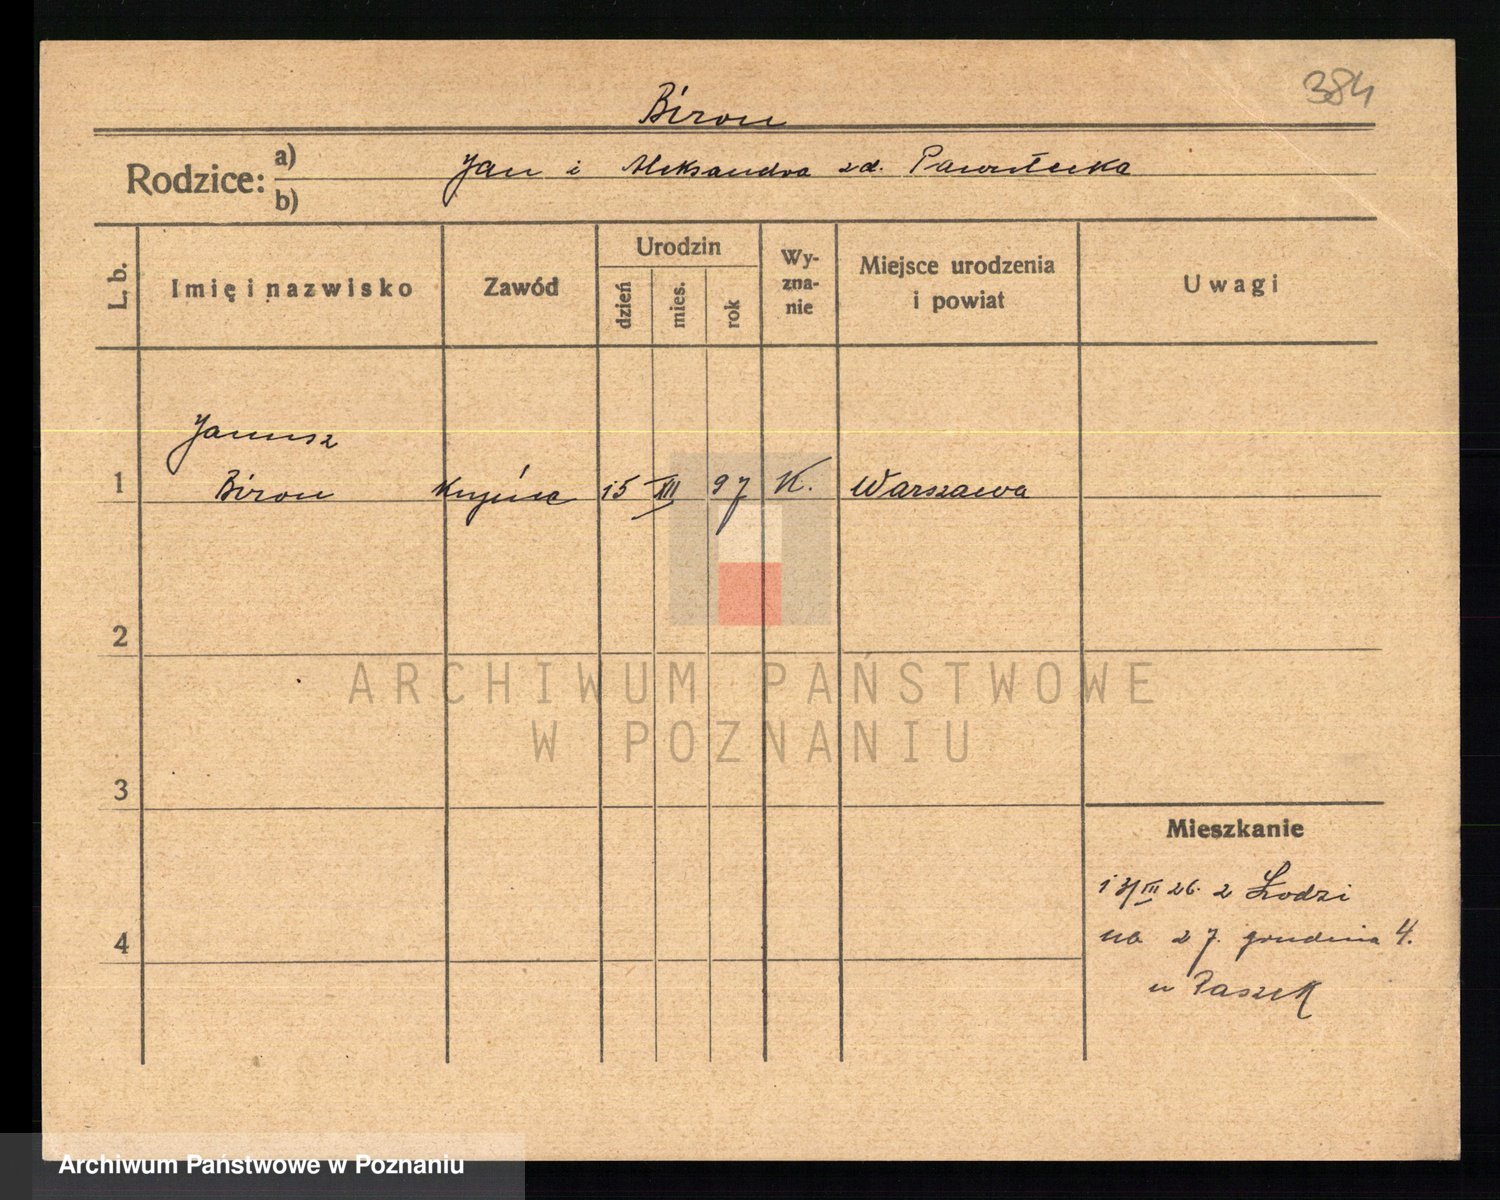 384
Biron
Rodzice: a) b) Jan i Aleksandra zd. Pawełecka
L. b. Imię i nazwisko Zawód Urodzin dzień mies. rok Wy-zna-nie Miejsce urodzenia i powiat Uwagi
Janusz
1 Biron 15 XII 97 K. Warszawa
2
3
4
Mieszkanie
III 26. z Łodzi
na 27. grudnia 4.
u Paszek
ARCHIWUM PAŃSTWOWE
W POZNANIU
Archiwum Państwowe w Poznaniu